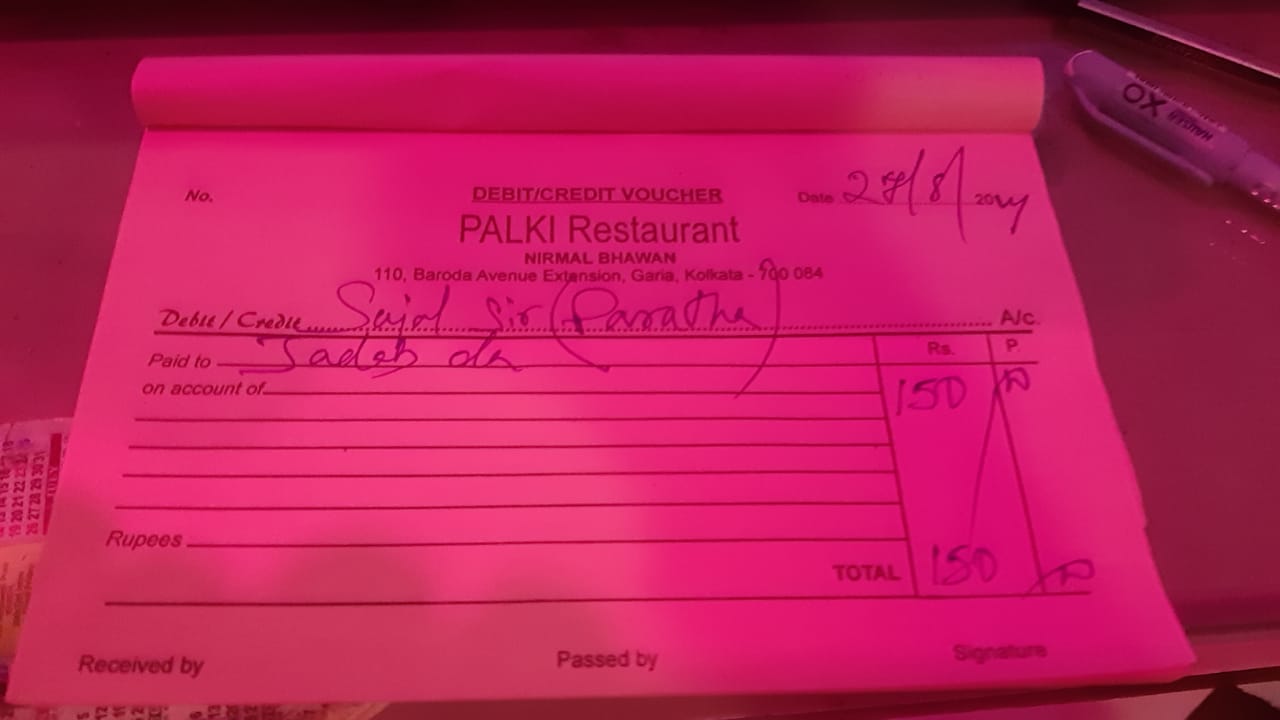 No. DEBIT/CREDIT VOUCHER Date 27/8/2024
PALKI Restaurant
NIRMAL BHAWAN
110, Baroda Avenue Extension, Garia, Kolkata - 700 084
Debit / Credit Sajal Sir (Paratha) A/c.
Paid to Jadab da Rs. P.
on account of 150
Rupees
TOTAL 150
Received by Passed by Signature
OX
HAUSER